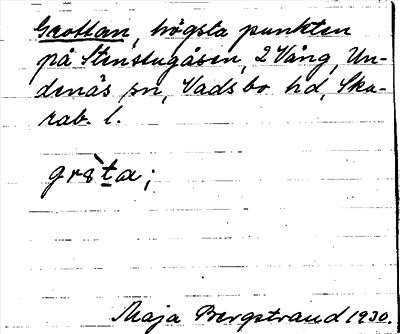 Grottan, högsta punkten
på Stenstugåsen, 2 Vång, Un-
denäs sn, Vadsbo hd, Ska-
rab. l.
grò̀ta;
Maja Bergstrand 1930.